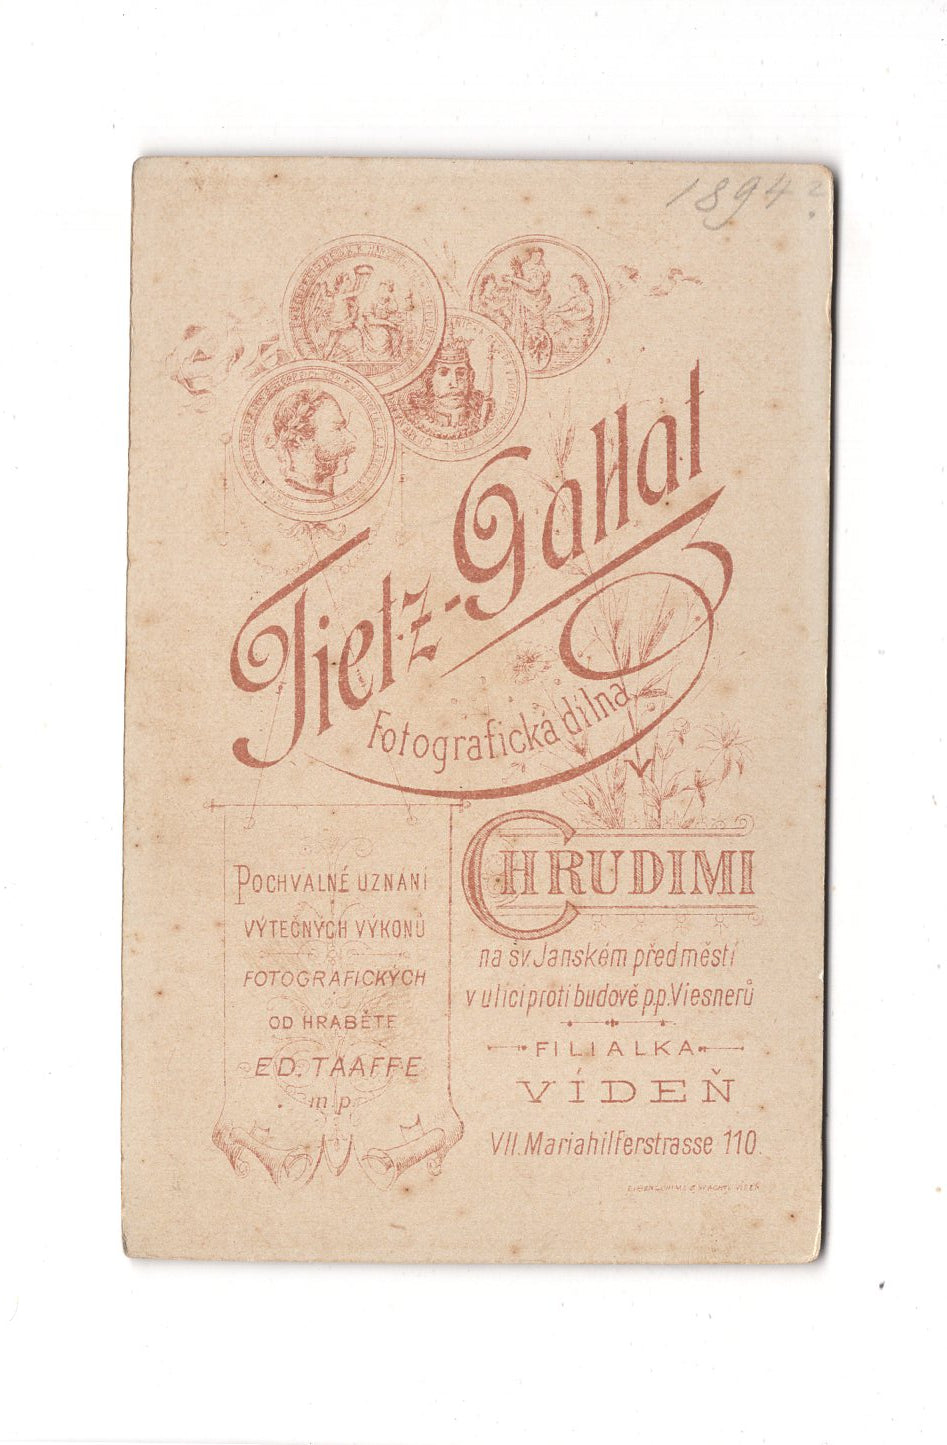 1894?
Tietz-Gallat
Fotografická dílna
V
CHRUDIMI
na sv. Janském předměstí
v ulici proti budově p.p. Viesnerů
FILIALKA
VÍDEŇ
VII. Mariahilferstrasse 110.
POCHVALNÉ UZNANÍ
VÝTEČNÝCH VÝKONŮ
FOTOGRAFICKÝCH
OD HRABĚTE
ED. TAAFFE
m.p.